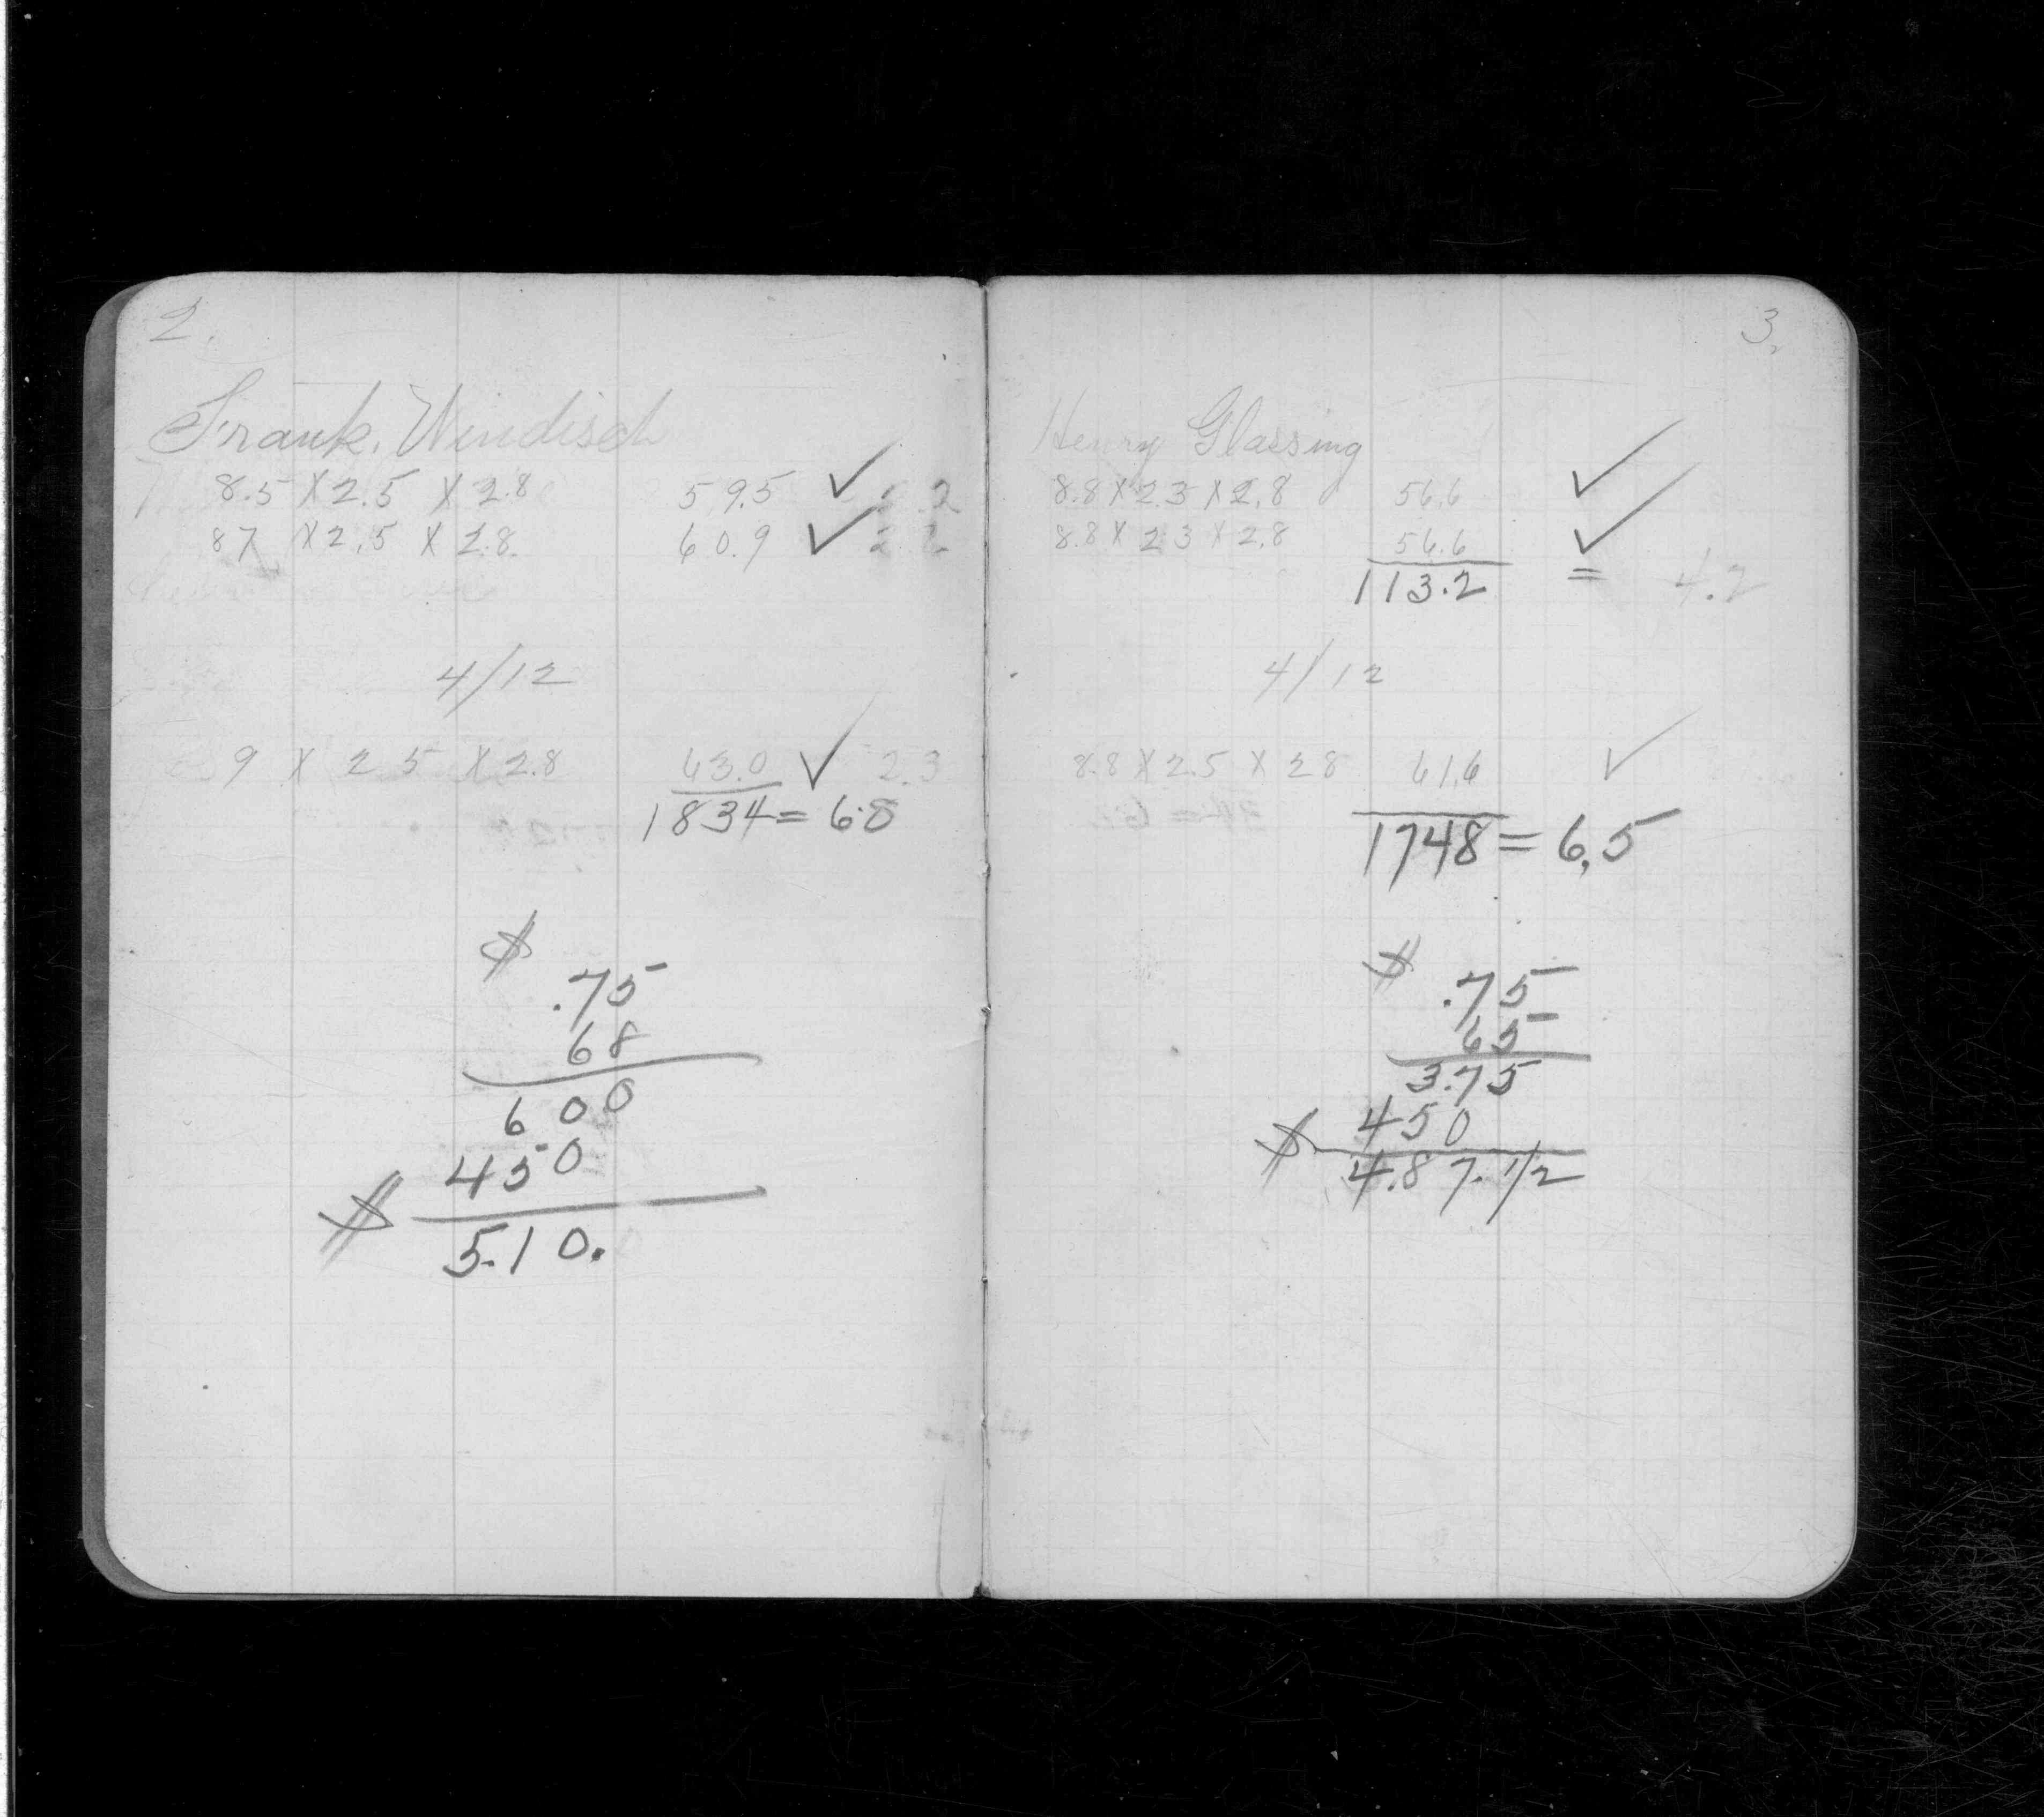 2.
Frank Windisch
8.5 X 2.5 X 2.8 59.5 ✓ 2.2
87 X 2.5 X 2.8. 60.9 ✓ 2.2
4/12
9 X 2 5 X 2.8 63.0 ✓ 2.3
1834 = 6.8
$
.75
68
600
450
$ 5.10.
3.
Henry Glassing
8.8 X 2.3 X 2.8 56.6 ✓
8.8 X 2.3 X 2.8 56.6 ✓
113.2 = 4.2
4/12
8.8 X 2.5 X 28 61.6 ✓
1748 = 6,5
$
.75
65
3.75
450
$ 4.87.1/2